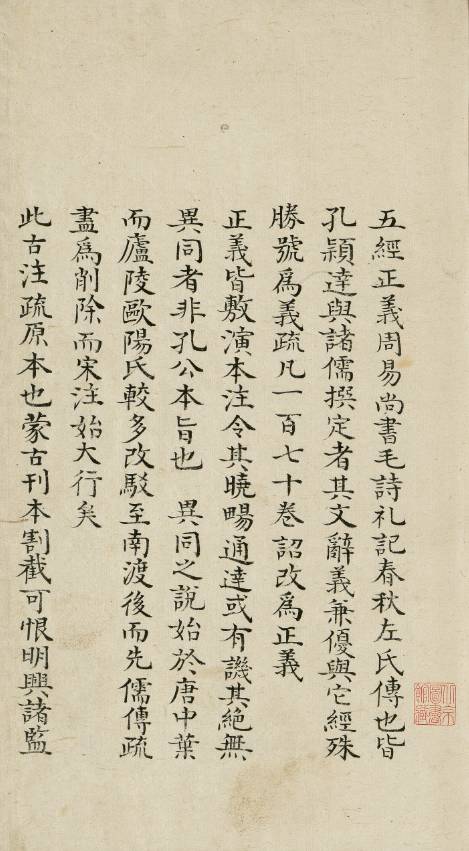 五經正義周易尚書毛詩礼記春秋左氏傳也皆
孔穎達與諸儒撰定者其文辭義兼優與它經殊
勝號為義疏凡一百七十卷詔改為正義
正義皆敷演本注令其曉暢通達或有譏其絕無
異同者非孔公本旨也　異同之說始於唐中葉
而廬陵歐陽氏較多改駁至南渡後而先儒傳疏
盡為削除而宋注始大行矣
此古注疏原本也蒙古刊本割截可恨明興諸監